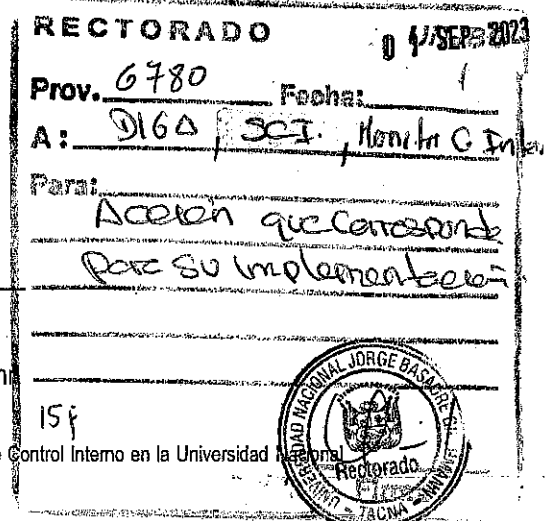 RECTORADO
0 4 SEP 2023
Prov. 6780 Fecha:
A: DIGA, SCI, Monitor C Inter
Para:
Acción que corresponde
para su implementación
15f
Control Interno en la Universidad Nacional
UNIVERSIDAD NACIONAL JORGE BASADRE GROHMANN
Rectorado
TACNA